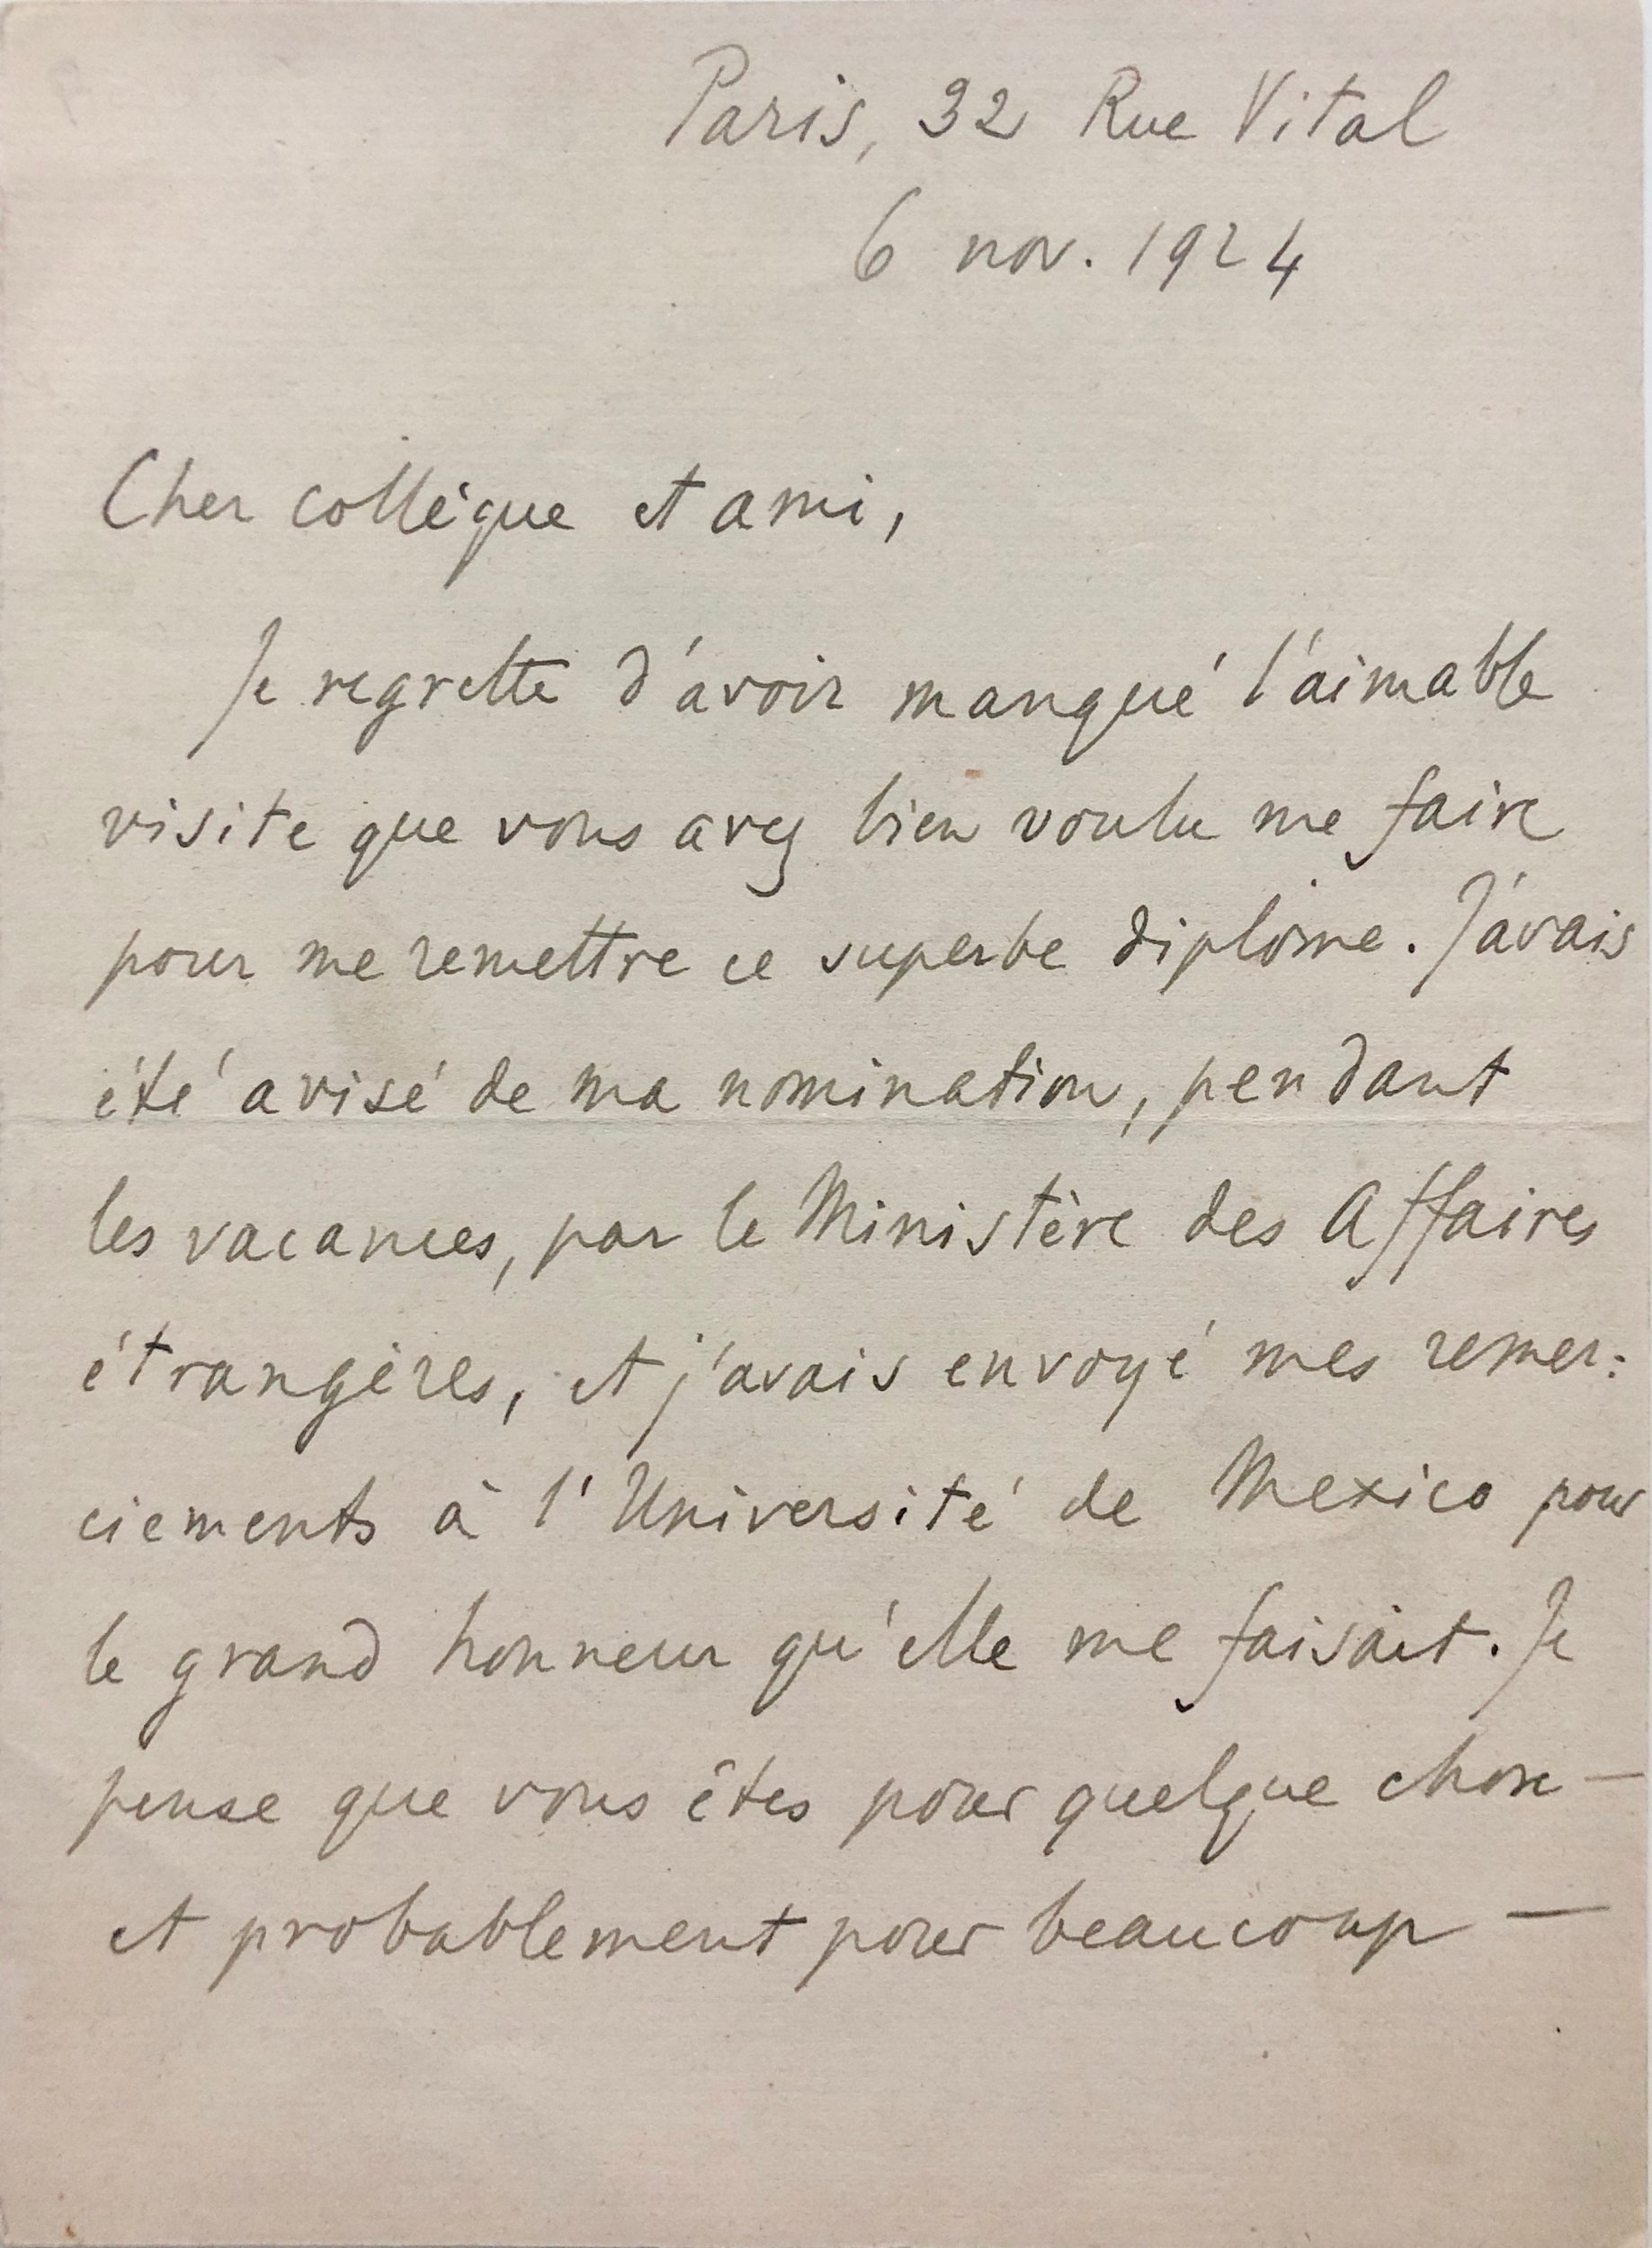 Paris, 32 Rue Vital
6 nov. 1924
Cher collègue et ami,
Je regrette d'avoir manqué l'aimable
visite que vous avez bien voulu me faire
pour me remettre ce superbe diplôme. J'avais
été avisé de ma nomination, pendant
les vacances, par le Ministère des Affaires
étrangères, et j'avais envoyé mes remer-
ciements à l'Université de Mexico pour
le grand honneur qu'elle me faisait. Je
pense que vous êtes pour quelque chose —
et probablement pour beaucoup —